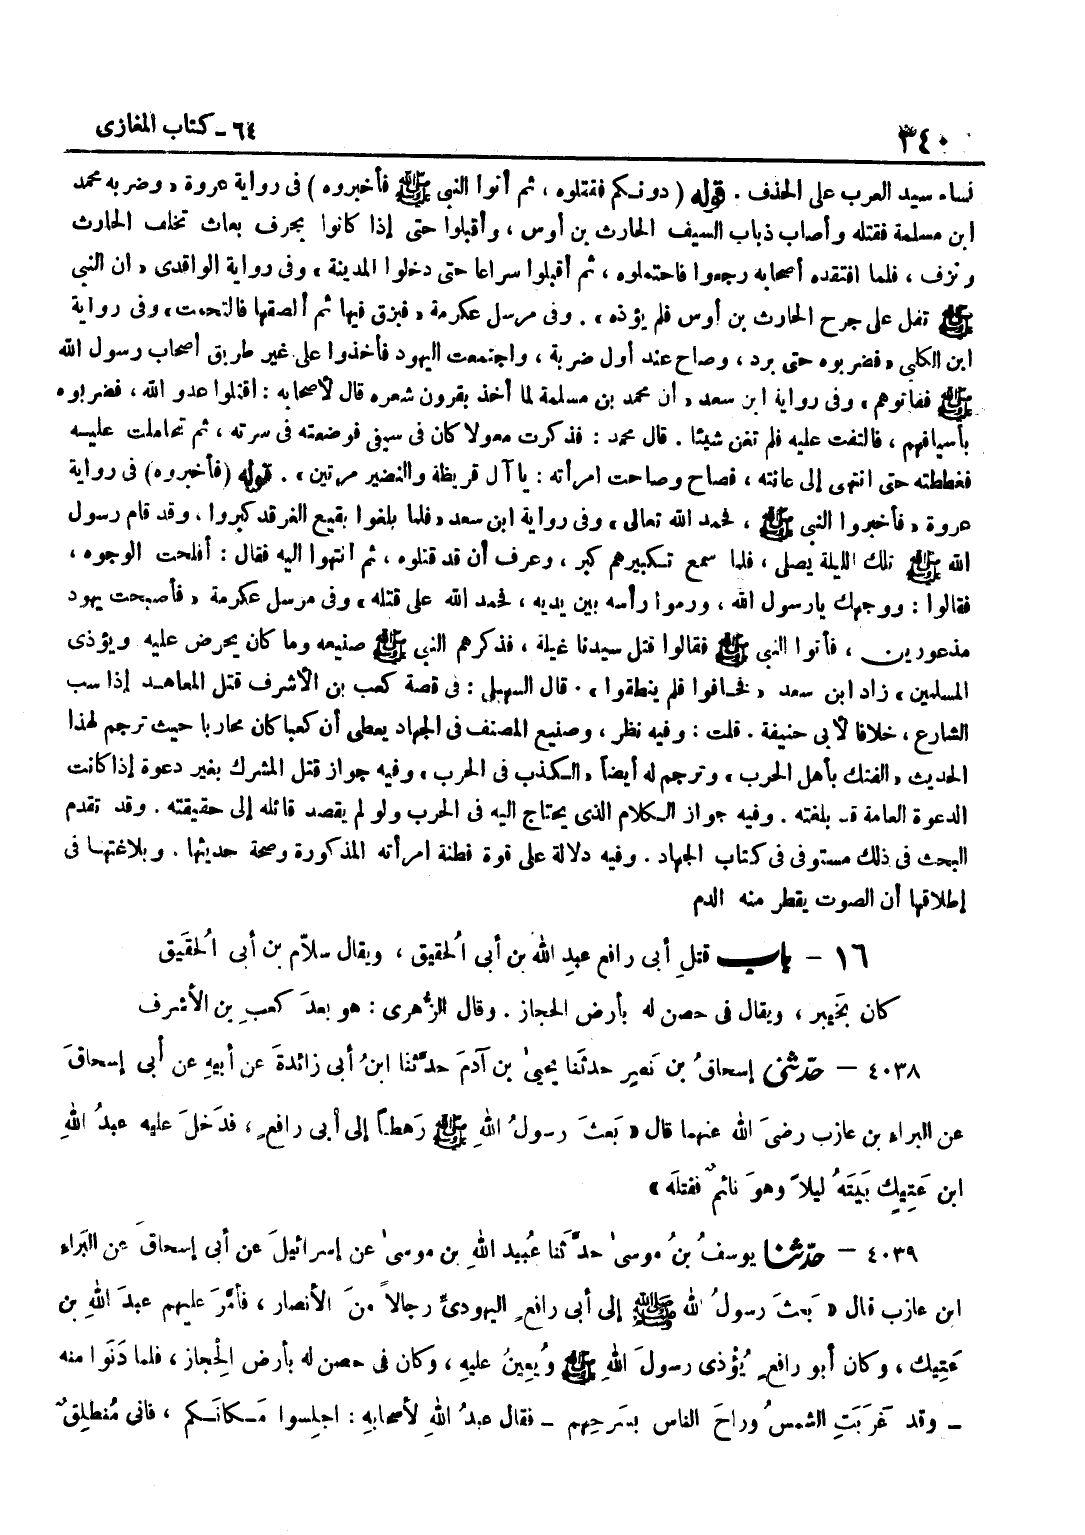 ٣٤٠
٦٤ - كتاب المغازى
نساء سيد العرب على الحذف . قوله ( دونـكم فقتلوه ، ثم أتوا النبي ﷺ فأخبروه ) فى رواية عروة « وضربه محمد
ابن مسلمة فقتله وأصاب ذباب السيف الحارث بن أوس ، وأقبلوا حتى إذا كانوا بجرف بعاث تخلف الحارث
ونزف ، فلما افتقده أصحابه رجعوا فاحتملوه ، ثم أقبلوا سراعا حتى دخلوا المدينة » وفى رواية الواقدى « ان النبي
ﷺ تفل على جرح الحارث بن أوس فلم يؤذه » . وفى مرسل عكرمة « فبزق فيها ثم ألصقها فالتحمت » وفى رواية
ابن الكلبي « فضربوه حتى برد ، وصاح عند أول ضربة ، واجتمعت اليهود فأخذوا على غير طريق أصحاب رسول الله
ﷺ ففاتوهم » وفى رواية ابن سعد « أن محمد بن مسلمة لما أخذ بقرون شعره قال لأصحابه : اقتلوا عدو الله ، فضربوه
بأسيافهم ، فالتفت عليه فلم تغن شيئا . قال محمد : فذكرت معولا كان فى سيفى فوضعته فى سرته ، ثم تحاملت عليـه
فغططته حتى انتهى إلى عانته ، فصاح وصاحت امرأته : يا آل قريظة والنضير مرتين » . قوله ( فأخبروه ) فى رواية
عروة « فأخبروا النبي ﷺ ، فحمد الله تعالى » وفى رواية ابن سعد « فلما بلغوا بقيع الغرقد كبروا ، وقد قام رسول
الله ﷺ تلك الليلة يصلى ، فلما سمع تـكبيرهم كبر ، وعرف أن قد قتلوه ، ثم انتهوا اليه فقال : أفلحت الوجوه ،
فقالوا : ووجهك يارسول الله ، ورموا رأسه بين يديه ، فحمد الله على قتله » وفى مرسل عكرمة « فأصبحت يهود
مذعورين ، فأتوا النبي ﷺ فقالوا قتل سيدنا غيلة ، فذكرهم النبي ﷺ صنيعه وما كان يحرض عليه ويؤذى
المسلمين » زاد ابن سعد « فخـافوا فلم ينطقوا » . قال السهيلى : فى قصة كعب بن الأشرف قتل المعاهـد إذا سب
الشارع ، خلافا لأبى حنيفة . قلت : وفيه نظر ، وصنيع المصنف فى الجهاد يعطى أن كعبا كان محاربا حيث ترجم لهذا
الحديث « الفتك بأهل الحرب » وترجم له أيضاً « الـكذب فى الحرب » وفيه جواز قتل المشرك بغير دعوة إذا كانت
الدعوة العامة قد بلغته . وفيه جواز الـكلام الذى يحتاج اليه فى الحرب ولو لم يقصد قائله إلى حقيقته . وقد تقدم
البحث فى ذلك مستوفى فى كتاب الجهاد . وفيه دلالة على قوة فطنة امرأته المذكورة وصحة حديثها . وبلاغتهـا فى
إطلاقها أن الصوت يقطر منه الدم
١٦ - باب قتلِ أبى رافع عبدِ الله بن أبى الْحقيق ، ويقال سلاّم بن أبى الْحقَيق
كان بخَيبر ، ويقال فى حصن له بأرض الحجاز . وقال الزُّهرى : هو بعدَ كعبِ بن الأشرف
٤٠٣٨ - حدّثنى إسحاقُ بن نصر حدثَنا يحيىٰ بن آدمَ حدَّثنا ابنُ أبى زائدةَ عن أبيهِ عن أبى إسحاقَ
عن البراء بن عازب رضىَ الله عنهما قال « بَعثَ رسولُ اللهِ ﷺ رَهطاً إلى أبى رافعٍ ، فدَخلَ عليه عبدُ اللهِ
ابن عَتِيكٍ بَيتَهُ ليلاً وهوَ نائمٌ فقتلَه »
٤٠٣٩ - حدّثنا يوسفُ بنُ موسىٰ حدَّثَنا عُبيد اللهِ بن موسىٰ عن إسرائيلَ عن أبى إسحاقَ عن البَراءِ
ابن عازب قال « بَعثَ رسولُ الله ﷺ إلى أبى رافعٍ اليهودىِّ رجالاً منَ الأنصار ، فأمَّرَ عليهم عبدَ اللهِ بن
عَتِيك ، وكان أبو رافعٍ يُؤْذى رسولَ اللهِ ﷺ ويُعِينُ عليهِ ، وكان فى حصن له بأرض الْحِجاز ، فلما دَنَوا منه
ـ وقد غَرَبَتِ الشمسُ وراحَ الناس بسَرحِهم ـ فقال عبدُ اللهِ لأصحابهِ : اجلِسوا مَـكانَـكم ، فانى مُنطلِقٌ